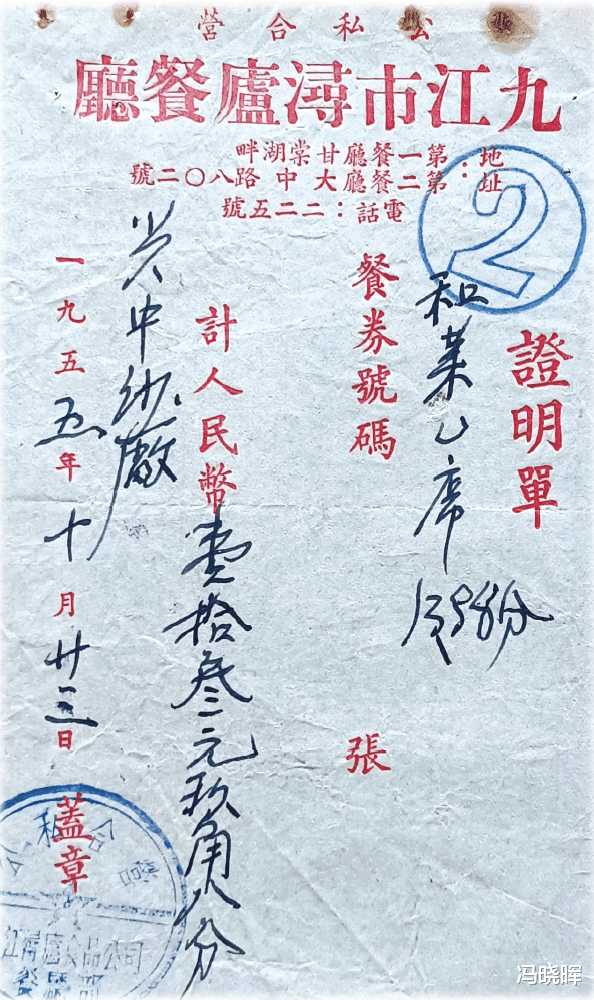 公私合營
九江市潯廬餐廳
地址：第一餐廳甘棠湖畔
第二餐廳大中路八〇二號
電話：二二五號
②
證明單
和菜乙席
餐券號碼 張
計人民幣壹拾叁元玖角八分
兴中纱廠
一九五五年十月廿三日 蓋章
公私合營
江潯廬食品公司
冯晓晖